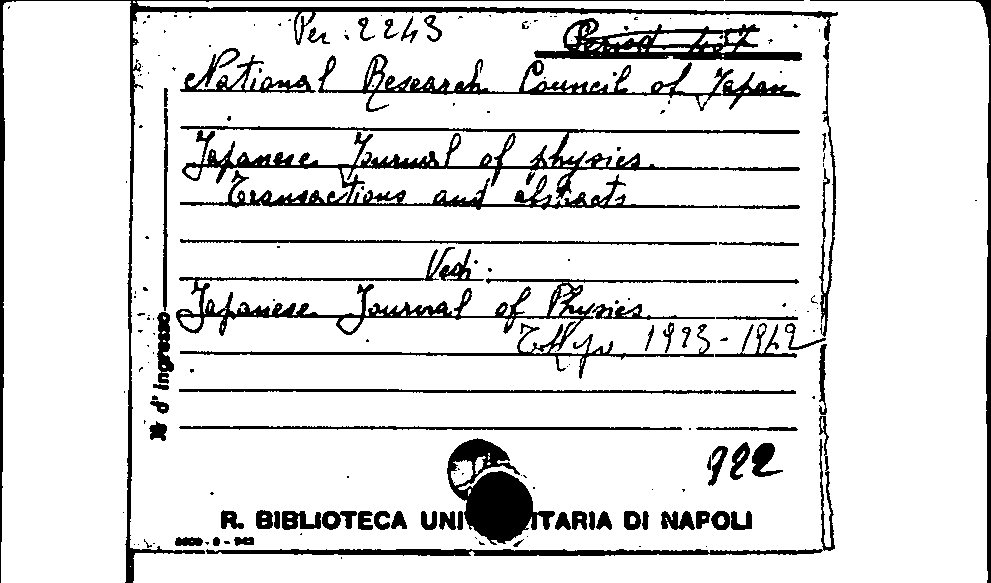 Per. 2243
Period. 457
National Research Council of Japan
Japanese Journal of physics.
Transactions and abstracts.
Vedi:
Japanese Journal of Physics.
Tokyo, 1923-1942
N. d'ingresso
922
R. BIBLIOTECA UNI ITARIA DI NAPOLI